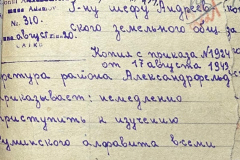 № 310.
20.
Г-ну шефу Андреев
ского земельного общ. за
Копия с приказа № 1924
от 17 августа 1942
ретура района Александрфельд
приказывает: немедленно
приступить к изучению
румынского алфавита всеми